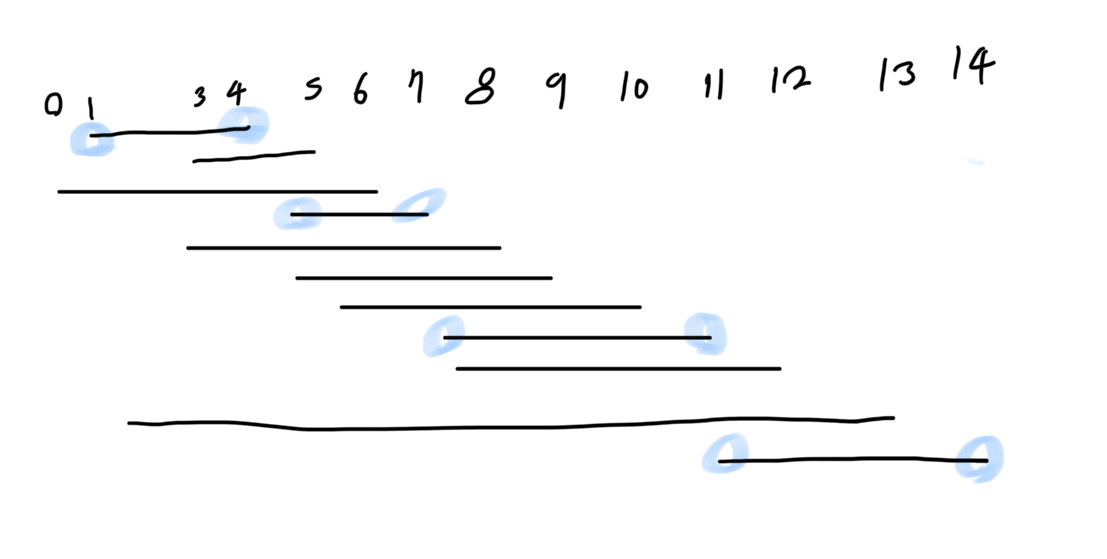 0 1 3 4 5 6 7 8 9 10 11 12 13 14